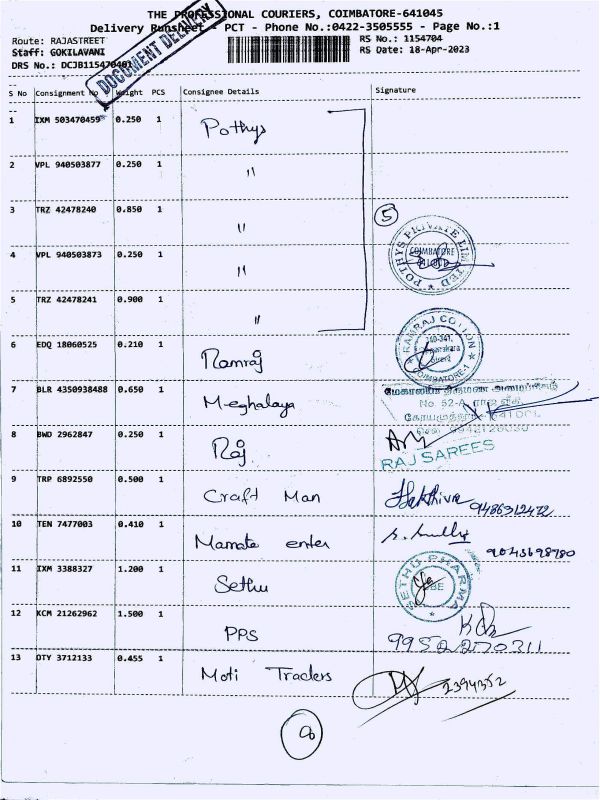 THE PROFESSIONAL COURIERS, COIMBATORE-641045
Delivery Runsheet - PCT - Phone No.:0422-3505555 - Page No.:1
Route: RAJASTREET
RS No.: 1154704
Staff: GOKILAVANI
RS Date: 18-Apr-2023
DRS No.: DCJB115470401
DOCUMENT DELIVERY
S No Consignment No Weight PCS Consignee Details Signature
1 IXM 503470459 0.250 1 Pothys
2 VPL 940503877 0.250 1 "
3 TRZ 42478240 0.850 1 "
5
POTHYS PRIVATE LIMITED
COIMBATORE
4 VPL 940503873 0.250 1 "
5 TRZ 42478241 0.900 1 "
RAMRAJ COTTON
COIMBATORE-1
6 EDQ 18060525 0.210 1 Ramraj
7 BLR 4350938488 0.650 1 Meghalaya
No. 52-A
8 BWD 2962847 0.250 1 Raj
RAJ SAREES
9 TRP 6892550 0.500 1 Craft Man
9486312472
10 TEN 7477003 0.410 1 Mamate enter
9043698780
11 IXM 3388327 1.200 1 Sethu
SETHU PHARMA
CBE
12 KCM 21262962 1.500 1 PPS
9952270311
13 OTY 3712133 0.455 1 Moti Traders
2394352